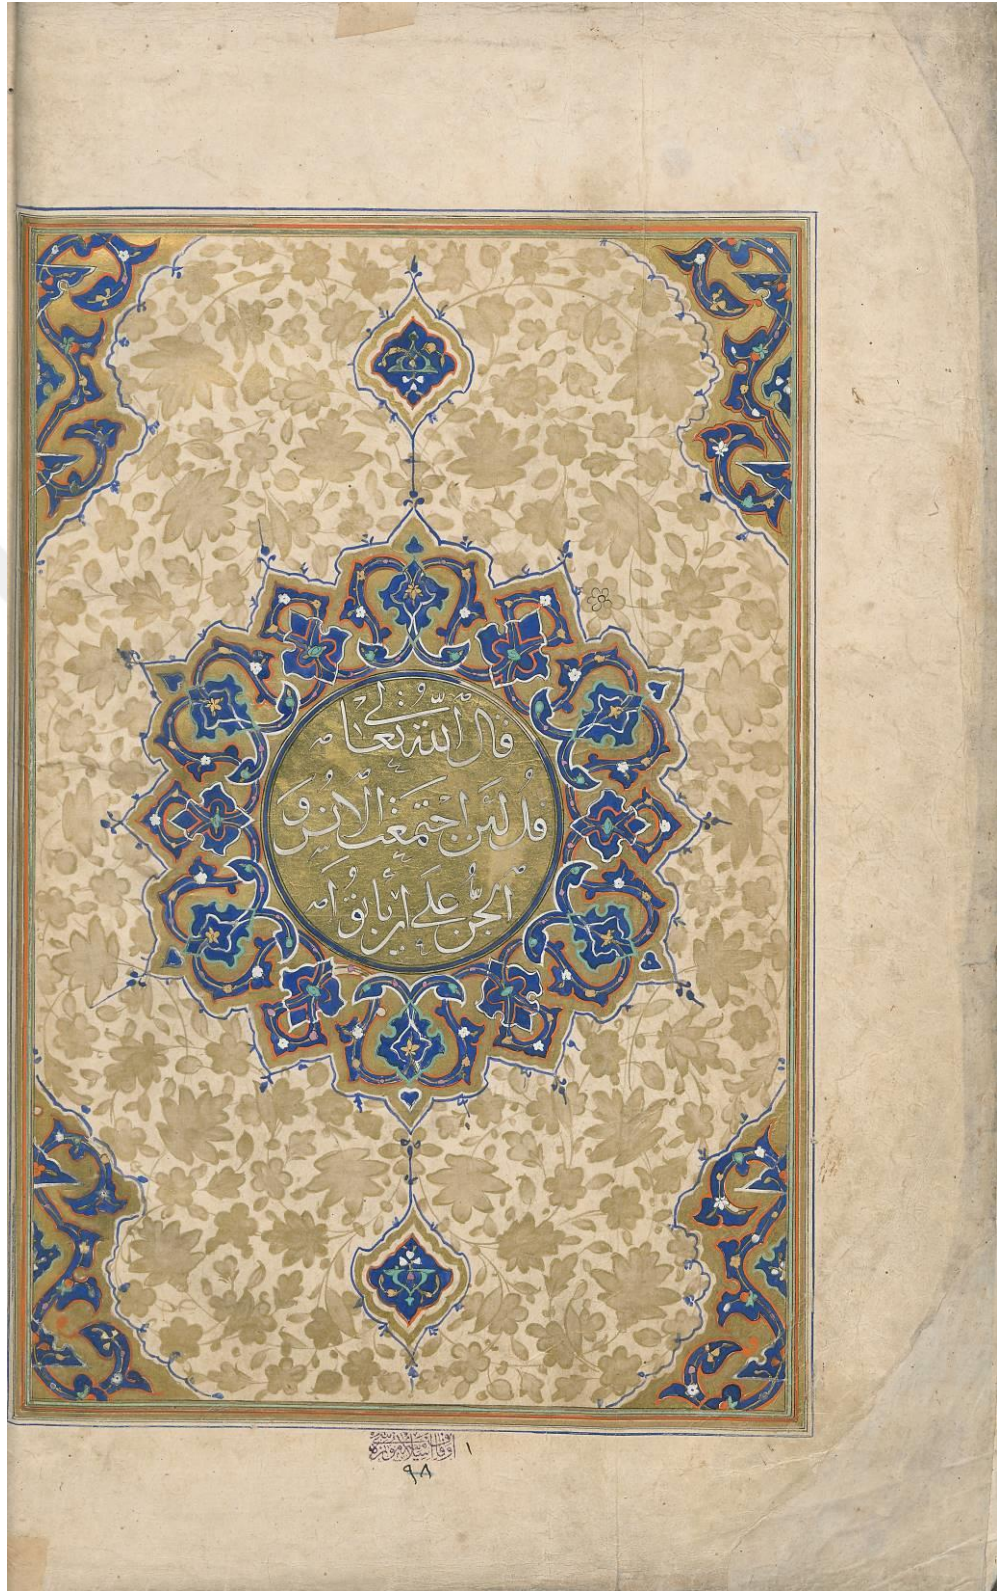 قال الله تعالى
قُل لَئِن اجْتَمَعَت الْإِنس وَ
الجِنُّ عَلَى أَن يَأْتُوا
١
اوقاف اسلامیه موزه سی
٩٨